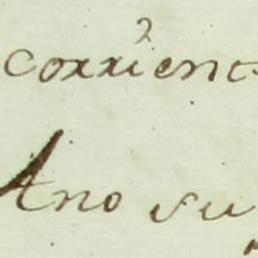 corrient
Ano su